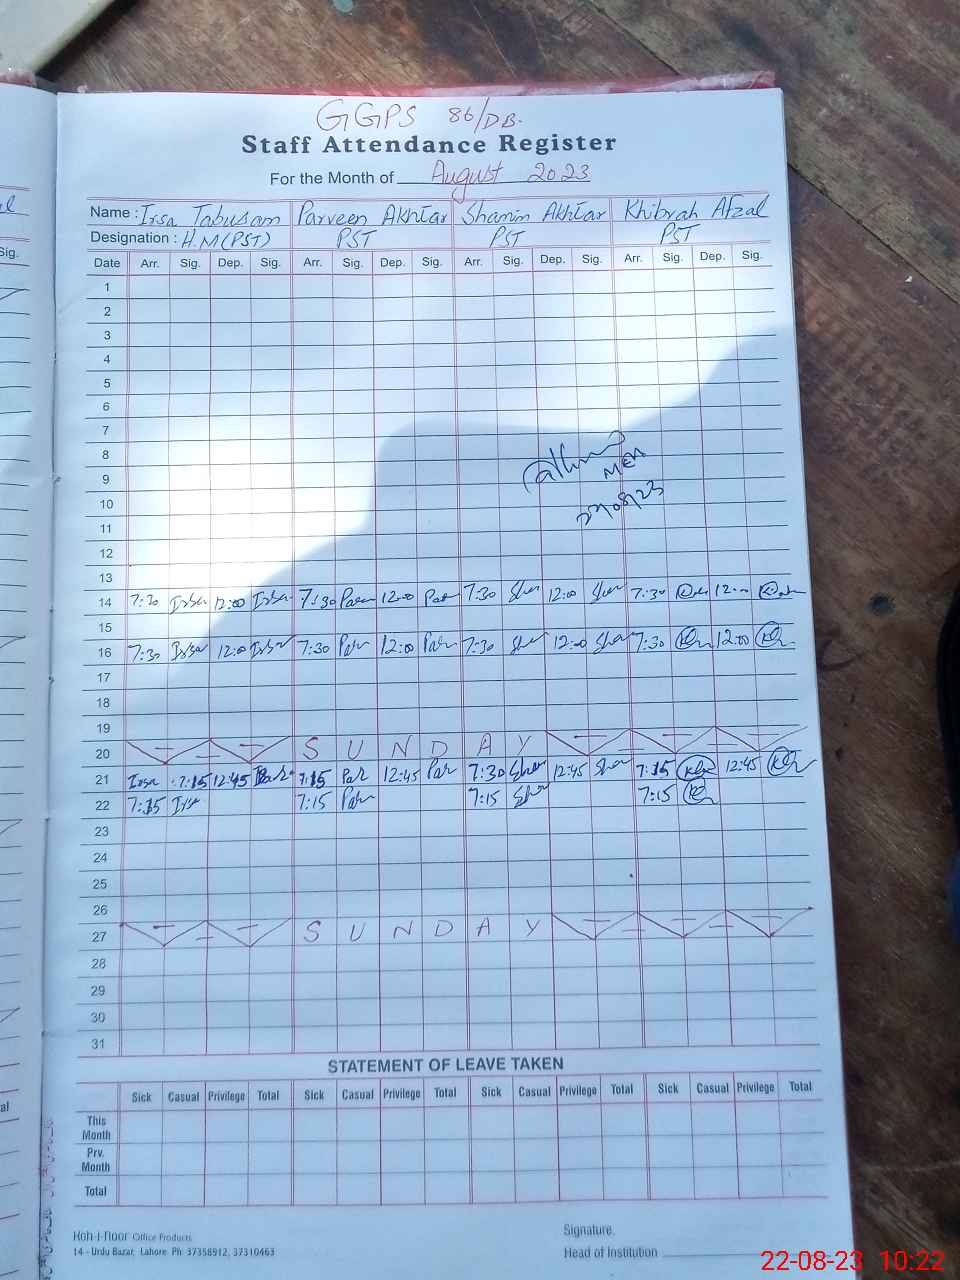 GGPS 86/DB.
Staff Attendance Register
For the Month of August 2023
Name : Irsa Tabusam Parveen Akhtar Shamim Akhtar Khibrah Afzal
Designation : H.M(PST) PST PST PST
Date Arr. Sig. Dep. Sig. Arr. Sig. Dep. Sig. Arr. Sig. Dep. Sig. Arr. Sig. Dep. Sig.
1
2
3
4
5
6
7
8
9
10
11
12
13
14 7:30 Irsa 12:00 Irsa 7:30 12:00 Par 7:30 Sha 12:00 Sha 7:30 12:00
15
16 7:30 Irsa 12:00 Irsa 7:30 Par 12:00 Par 7:30 Sha 12:00 Sha 7:30 Kh 12:00 Kh
17
18
19
20 SUNDAY
21 Irsa 7:15 12:45 7:15 Par 12:45 Par 7:30 Sha 12:45 Sha 7:15 Kh 12:45 Kh
22 7:15 Irsa 7:15 Par 7:15 Sha 7:15 Kh
23
24
25
26
27 SUNDAY
28
29
30
31
MEA
22/08/23
STATEMENT OF LEAVE TAKEN
Sick Casual Privilege Total Sick Casual Privilege Total Sick Casual Privilege Total Sick Casual Privilege Total
This Month
Prv. Month
Total
Koh-i-noor Office Products
14 - Urdu Bazar, Lahore. Ph: 37358912, 37310463
Signature.
Head of Institution
22-08-23 10:22